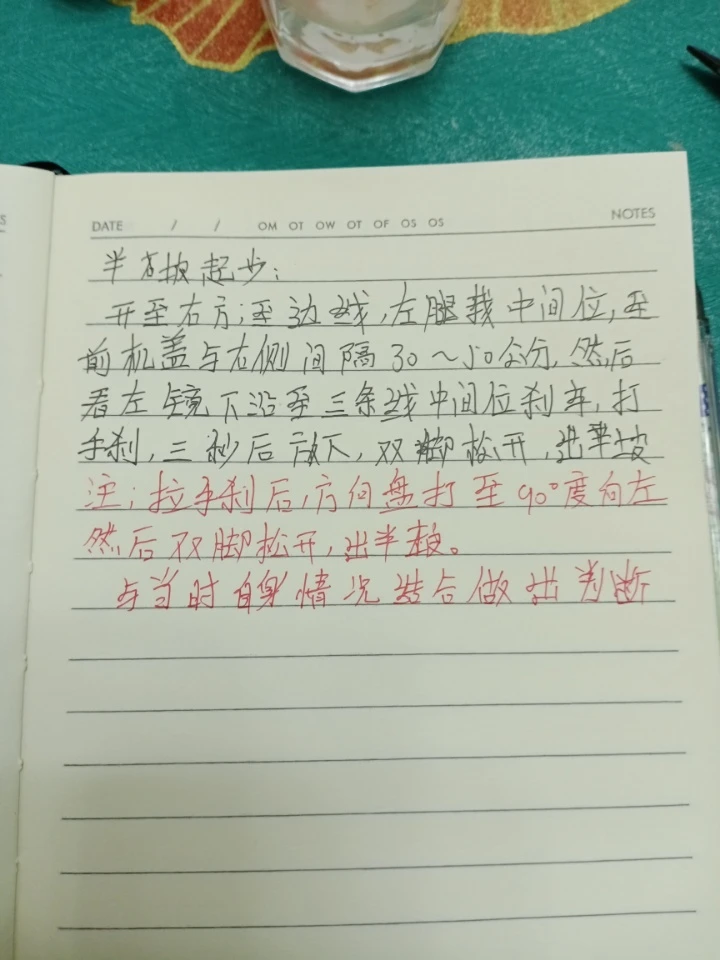 DATE / / OM OT OW OT OF OS OS NOTES
半坡起步:
开至右方;至边线,左腿找中间位,至
前机盖与右侧间隔30～50公分,然后
看左镜下沿至三条线中间位刹车,打
手刹,三秒后放下,双脚松开,出半坡
注:拉手刹后,方向盘打至90°度向左
然后双脚松开,出半坡。
与当时自身情况结合做出判断